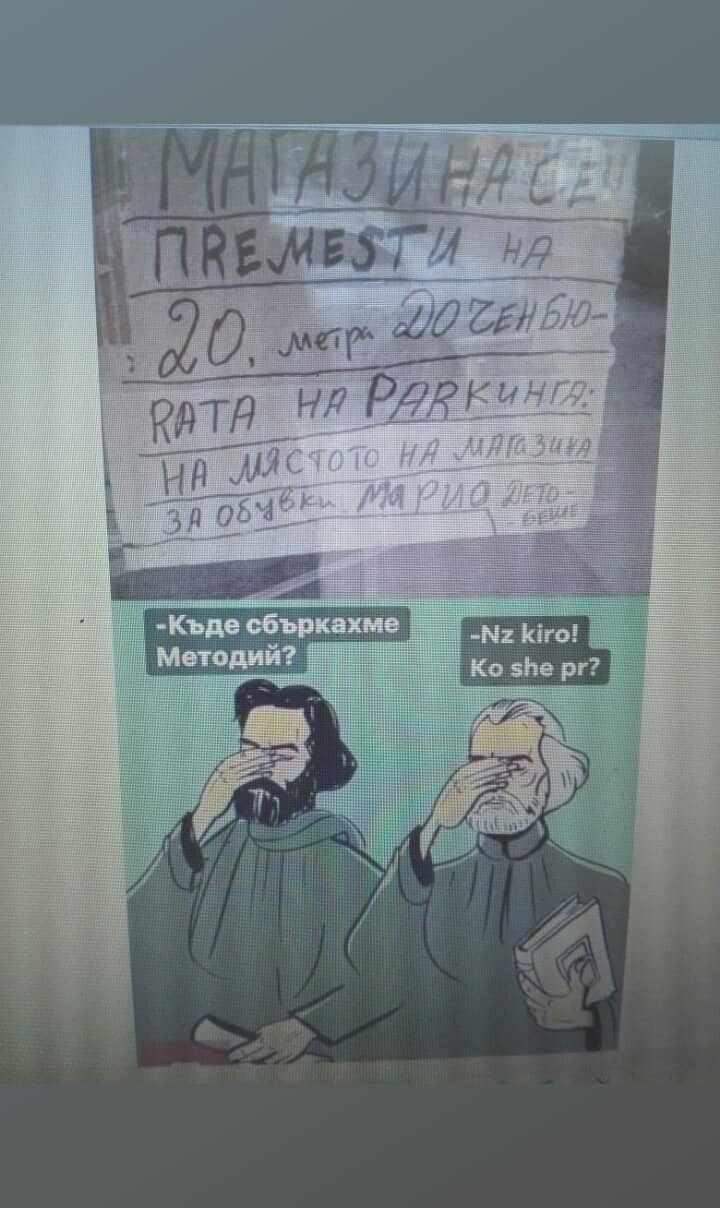 МАГАЗИНА СЕ
ПRЕМЕSТИ НА
20. метра ДО ЧЕН БЮ-
RАТА НА PARКИНГА:
НА МЯСТОТО НА МАГАЗИНА
ЗА ОБУВКИ МАРИО ДЕТО-
-БЕШЕ
-Къде сбъркахме
Методий?
-Nz kiro!
Ko she pr?